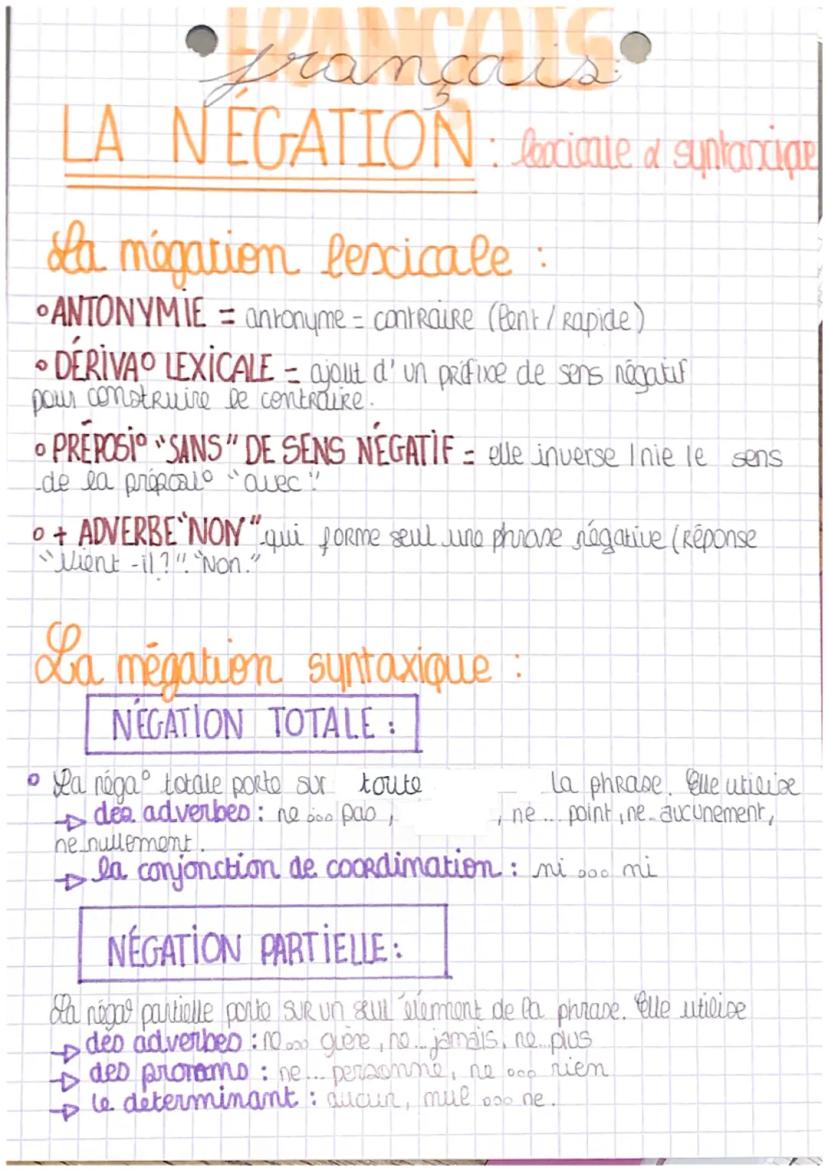 FRANÇAIS
français
LA NÉGATION : lexicale & syntaxique
La négation lexicale :
° ANTONYMIE = antonyme = contraire (lent / rapide)
° DÉRIVA° LEXICALE = ajout d'un préfixe de sens négatif
pour construire le contraire.
° PRÉPOSI° "SANS" DE SENS NÉGATIF = elle inverse / nie le sens
de la préposi° "avec".
° + ADVERBE "NON" qui forme seul une phrase négative (Réponse
"Vient-il ?". "Non."
La négation syntaxique :
NÉGATION TOTALE :
° La néga° totale porte sur toute la phrase. Elle utilise
→ des adverbes : ne ... pas, , ne ... point, ne... aucunement,
ne nullement.
→ la conjonction de coordination : ni ... ni
NÉGATION PARTIELLE :
La néga° partielle porte sur un seul élément de la phrase. Elle utilise
→ des adverbes : ne ... guère, ne... jamais, ne... plus
→ des pronoms : ne ... personne, ne ... rien
→ le déterminant : aucun, nul ... ne.